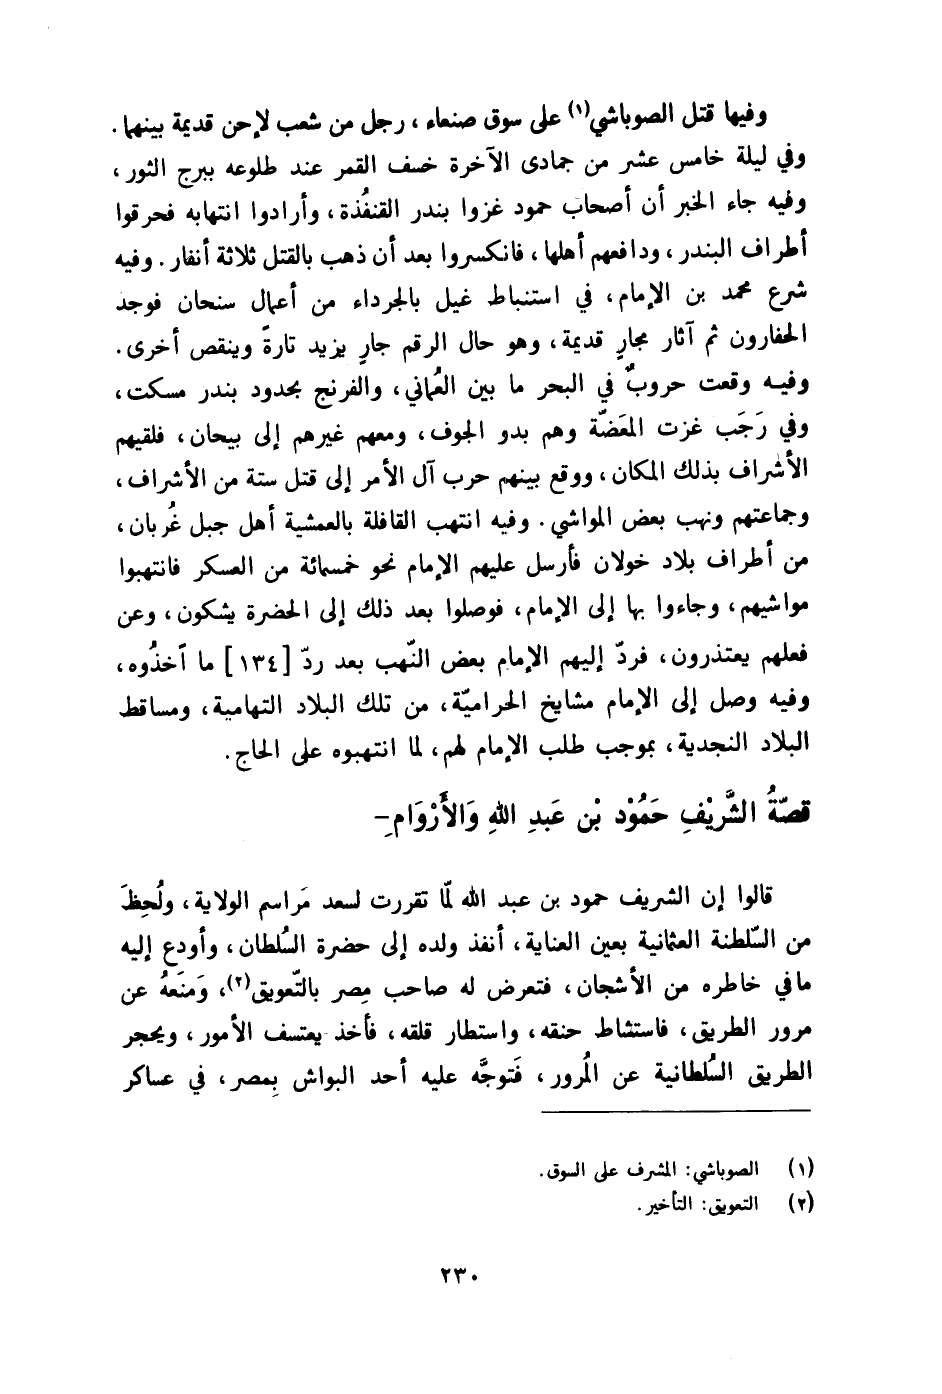 وفيها قتل الصوباشي(١) على سوق صنعاء ، رجل من شعب لإحن قديمة بينهما .
وفي ليلة خامس عشر من جمادى الآخرة خسف القمر عند طلوعه ببرج الثور ،
وفيه جاء الخبر أن أصحاب حمود غزوا بندر القنفُذة ، وأرادوا انتهابه فحرقوا
أطراف البندر ، ودافعهم أهلها ، فانكسروا بعد أن ذهب بالقتل ثلاثة أنفار . وفيه
شرع محمد بن الإمام ، في استنباط غيل بالجرداء من أعمال سنحان فوجد
الحفارون ثم آثار مجارٍ قديمة ، وهو حال الرقم جارٍ يزيد تارةً وينقص أخرى .
وفيه وقعت حروبٌ في البحر ما بين العُماني ، والفرنج بحدود بندر مسكت ،
وفي رَجَب غزت المعَضّة وهم بدو الجوف ، ومعهم غيرهم إلى بيحان ، فلقيهم
الأشراف بذلك المكان ، ووقع بينهم حرب آل الأمر إلى قتل ستة من الأشراف ،
وجماعتهم ونهب بعض المواشي . وفيه انتهب القافلة بالعمشية أهل جبل غُربان ،
من أطراف بلاد خولان فأرسل عليهم الإمام نحو خمسمائة من العسكر فانتهبوا
مواشيهم ، وجاءوا بها إلى الإمام ، فوصلوا بعد ذلك إلى الحضرة يشكون ، وعن
فعلهم يعتذرون ، فردّ إليهم الإمام بعض النّهب بعد ردّ [ ١٣٤ ] ما آخذُوه ،
وفيه وصل إلى الإمام مشايخ الحراميّة ، من تلك البلاد التهامية ، ومساقط
البلاد النجدية ، بموجب طلب الإمام لهم ، لما انتهبوه على الحاج .
قصّةُ الشَّرِيْفِ حَمُوْد بْن عَبدِ اللهِ وَالأَرْوَامِ -
قالوا إن الشريف حمود بن عبد الله لمّا تقررت لسعد مَراسم الولاية ، ولُحِظَ
من السّلطنة العثمانية بعين العناية ، أنفذ ولده إلى حضرة السُلطان ، وأودع إليه
ما في خاطره من الأشجان ، فتعرض له صاحب مِصر بالتّعويق(٢) ، وَمنَعهُ عن
مرور الطريق ، فاستشاط حنقه ، واستطار قلقه ، فأخذ يعتسف الأمور ، ويحجر
الطريق السُلطانية عن المُرور ، فَتوجَّه عليه أحد البواش بِمصر ، في عساكر
(١) الصوباشي : المشرف على السوق .
(٢) التعويق : التأخير .
٢٣٠